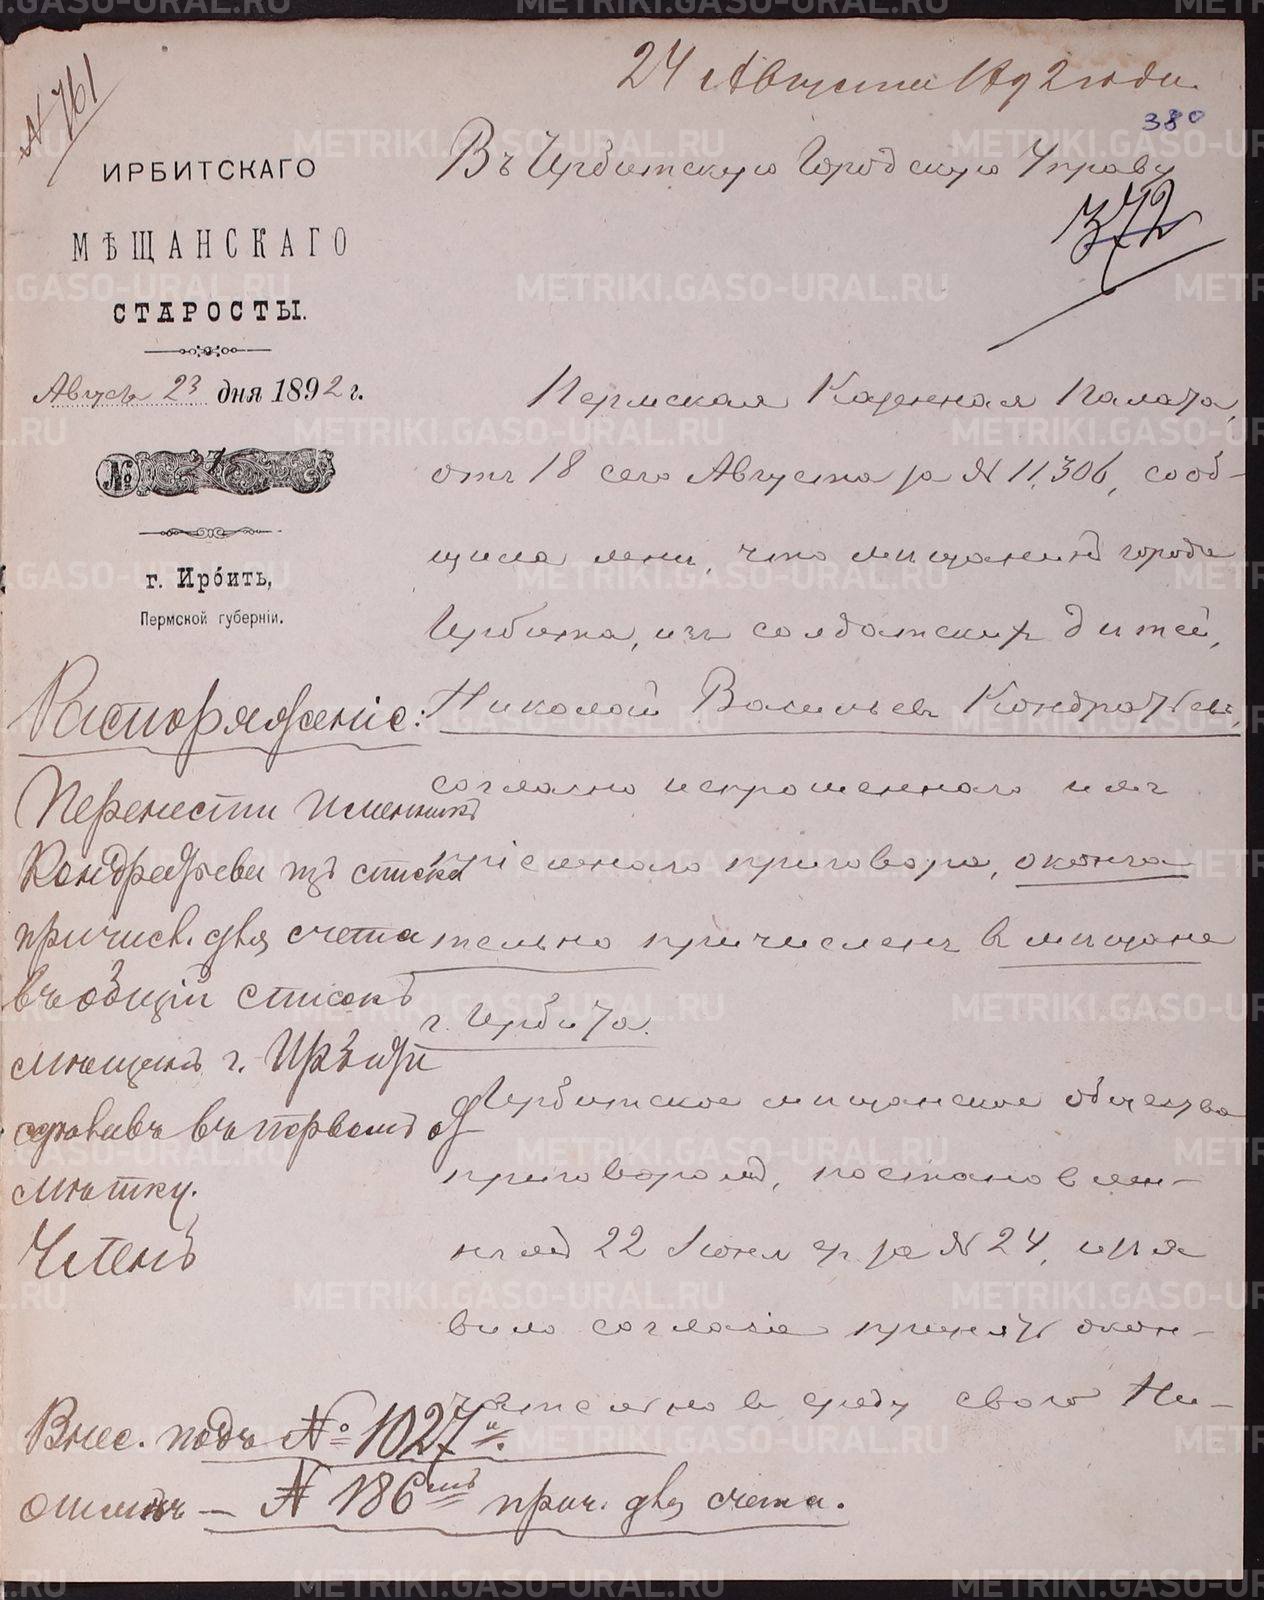 24 Августа 1892 года
№ 761
380
ИРБИТСКАГО
МѢЩАНСКАГО
СТАРОСТЫ.
Август 23 дня 1892 г.
№
г. Ирбить,
Пермской губерніи.
Въ Ирбитскую Городскую Управу
372
Пермская Казенная Палата,
отъ 18 сего Августа за № 11,306, сооб-
щила мни, что мищанинъ города
Ирбита, изъ солдатских дитей,
Николай Васильевъ Кондратьевъ,
согласно испрошеннаго имъ
пріемнаго приговора, оконча
тельно причисленъ в мищане
г. Ирбита.
Ирбитское мищанское общество
приговоромъ, постановлен-
нымъ 22 Іюня за № 24, изъя
вило согласіе принять окон-
чательно в среду свою Ни-
Распоряженіе:
Перенести
Кондратьева изъ списка
причисл. для счета
въ общій списокъ
мѣщанъ г. Ирбита
въ первомъ
Членъ
Внес. подъ № 1027
— № 186 прич. для счета.
METRIKI.GASO-URAL.RU